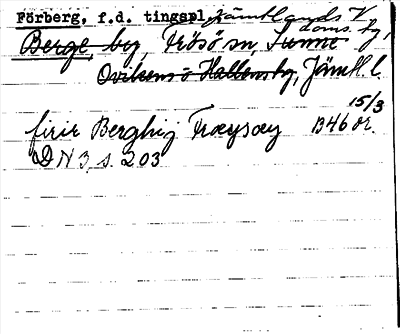 Förberg, f.d. tingspl, Jämtlands V
doms. hg,
Berge, by, Frösö sn, Sunne
Ovikens o Hallens hg, Jämtl. l.
15/3
firir Berghig Fræysæy 1346 or.
DN 3, s. 203